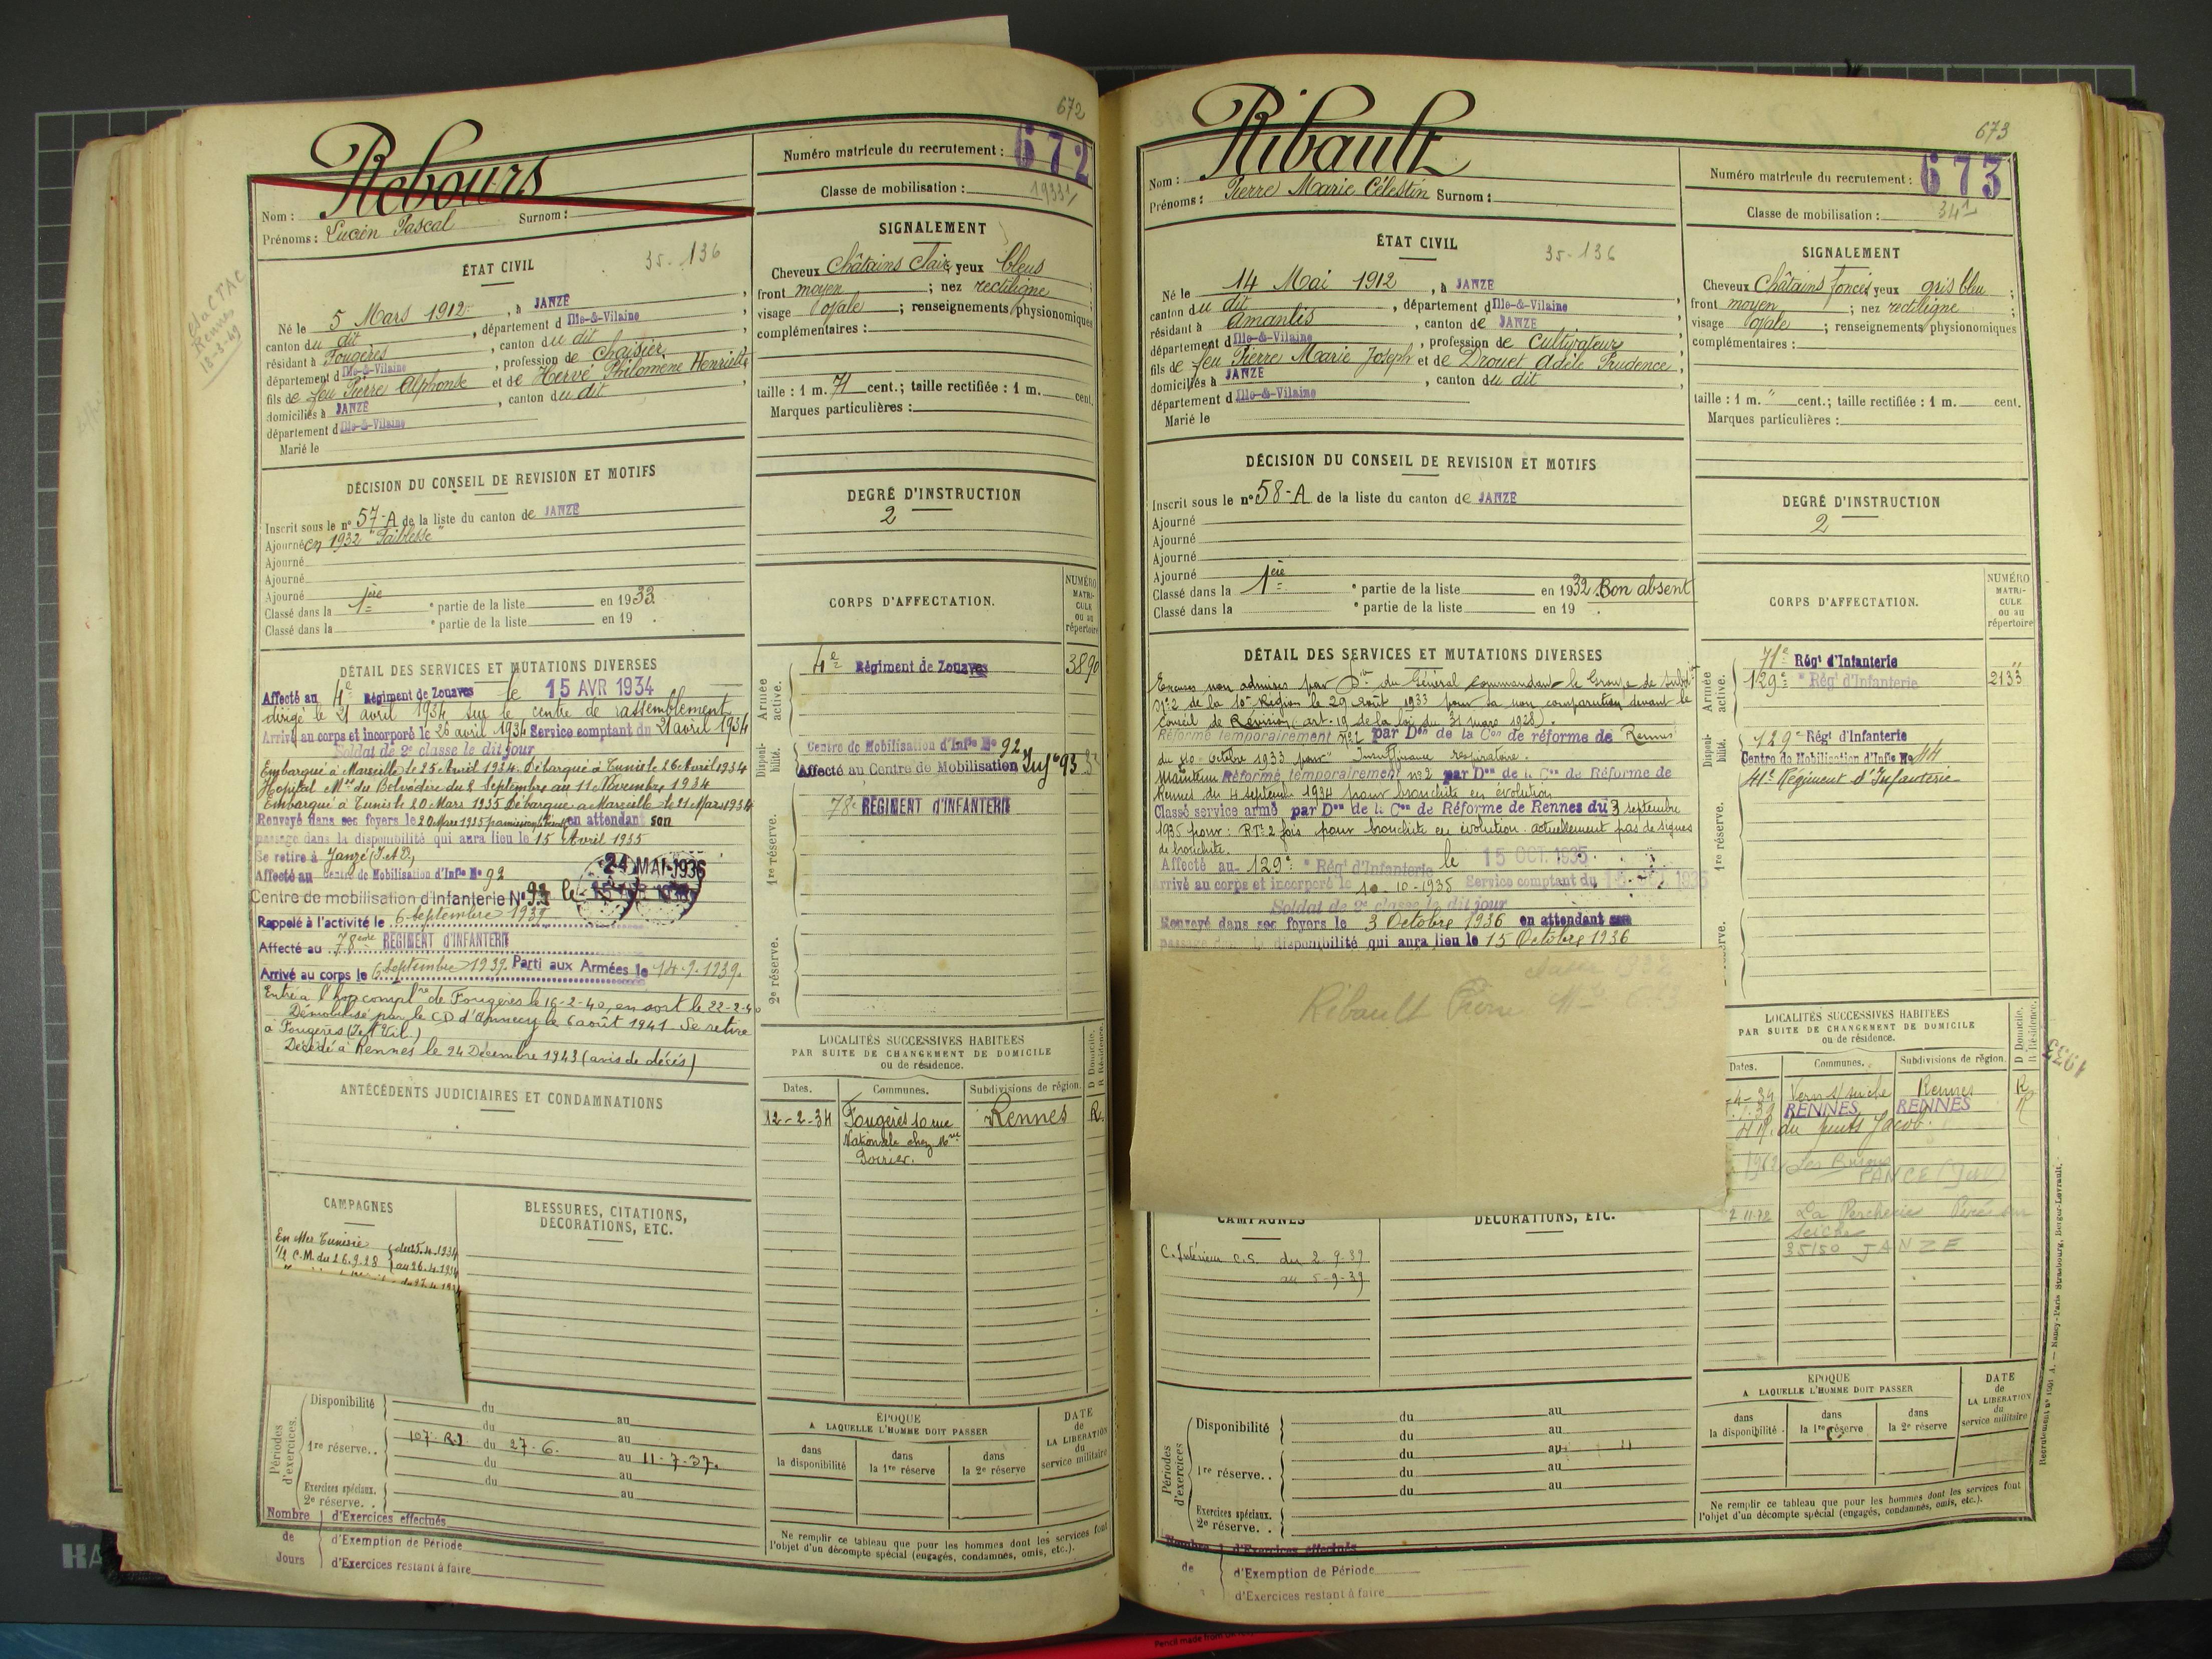 672
Rebours
Nom :
Surnom :
Prénoms : Lucien Pascal
Numéro matricule du recrutement : 672
Classe de mobilisation : 1933/1
ÉTAT CIVIL
35-136
Né le 5 Mars 1912, à JANZÉ
canton du dit, département d Ille-&-Vilaine
résidant à Fougères, canton du dit
département d Ille-&-Vilaine, profession de Chaisier
fils de feu Pierre Alphonse et de Hervé Philomène Henriette
domiciliés à JANZÉ, canton du dit
département d Ille-&-Vilaine
Marié le
à CTAC
Rennes
18-3-49
SIGNALEMENT
Cheveux Châtains Clair yeux bleus
front moyen ; nez rectiligne
visage ovale ; renseignements physionomiques
complémentaires :
taille : 1 m. 71 cent.; taille rectifiée : 1 m. cent.
Marques particulières :
DÉCISION DU CONSEIL DE REVISION ET MOTIFS
Inscrit sous le n° 57-A de la liste du canton de JANZÉ
Ajourné en 1932 "Faiblesse"
Ajourné
Ajourné
Ajourné
Classé dans la 1ère partie de la liste en 1933
Classé dans la partie de la liste en 19
DEGRÉ D'INSTRUCTION
2
CORPS D'AFFECTATION.
NUMÉRO MATRICULE ou au répertoire
Armée active.
4e Régiment de Zouaves 3890
Disponibilité.
Centre de Mobilisation d'Infie No 92
Affecté au Centre de Mobilisation Infie 93
1re réserve.
78e REGIMENT d'INFANTERIE
2e réserve.
DÉTAIL DES SERVICES ET MUTATIONS DIVERSES
Affecté au 4e Régiment de Zouaves le 15 AVR 1934
dirigé le 21 avril 1934 sur le centre de rassemblement
Arrivé au corps et incorporé le 26 avril 1934 Service comptant du 21 avril 1934
Soldat de 2e classe le dit jour
Embarqué à Marseille le 25 Avril 1934. Débarqué à Tunis le 26 Avril 1934
Hopital Mre du Belvédère du 2 Septembre au 11 Novembre 1934
Embarqué à Tunis le 20 Mars 1935 Débarqué à Marseille le 21 Mars 1934
Renvoyé dans ses foyers le 20 Mars 1935 en attendant son
passage dans la disponibilité qui aura lieu le 15 Avril 1935
Se retire à Janzé (I. et V.)
Affecté au Centre de Mobilisation d'Infie No 92
24 MAI 1936
Centre de mobilisation d'infanterie N° 93 le
Rappelé à l'activité le 6 septembre 1939
Affecté au 78ème REGIMENT d'INFANTERIE
Arrivé au corps le 6 Septembre 1939. Parti aux Armées le 14-9-1939.
Entré à l'hop compl re de Fougères le 16-2-40, en sort le 22-2-40
Démobilisé par le CD d'Annecy le 6 août 1941 Se retire
à Fougères (I et Vil)
Décédé à Rennes le 24 Décembre 1943 (avis de décès)
ANTÉCÉDENTS JUDICIAIRES ET CONDAMNATIONS
LOCALITÉS SUCCESSIVES HABITÉES
PAR SUITE DE CHANGEMENT DE DOMICILE
ou de résidence.
D Domicile. R Résidence.
Dates. Communes. Subdivisions de région.
12-2-34 Fougères 10 rue Rennes R.
Nationale chez Mme
Poirier.
CAMPAGNES
En Mer Tunisie du 25.4.1934
1/2 C.M. du 26.9.28 au 26.4.1934
BLESSURES, CITATIONS,
DÉCORATIONS, ETC.
Périodes d'exercices.
Disponibilité du au
du au
1re réserve. 107e R.I du 27-6. au 11-7-37.
du au
Exercices spéciaux. du au
2e réserve.
Nombre de Jours
d'Exercices effectués
d'Exemption de Période
d'Exercices restant à faire
ÉPOQUE
A LAQUELLE L'HOMME DOIT PASSER
dans la disponibilité
dans la 1re réserve
dans la 2e réserve
DATE de LA LIBÉRATION du service militaire
Ne remplir ce tableau que pour les hommes dont les services font
l'objet d'un décompte spécial (engagés, condamnés, omis, etc.).
673
Ribault
Nom :
Prénoms : Pierre Marie Célestin Surnom :
Numéro matricule du recrutement : 673
Classe de mobilisation : 34/1
ÉTAT CIVIL
35-136
Né le 14 Mai 1912, à JANZÉ
canton du dit, département d Ille-&-Vilaine
résidant à Amanlis, canton de JANZÉ
département d Ille-&-Vilaine, profession de Cultivateur
fils de feu Pierre Marie Joseph et de Drouet Adèle Prudence
domiciliés à JANZÉ, canton du dit
département d Ille-&-Vilaine
Marié le
SIGNALEMENT
Cheveux Châtains foncés yeux gris bleu
front moyen ; nez rectiligne
visage ovale ; renseignements physionomiques
complémentaires :
taille : 1 m. " cent.; taille rectifiée : 1 m. cent.
Marques particulières :
DÉCISION DU CONSEIL DE REVISION ET MOTIFS
Inscrit sous le n° 58-A de la liste du canton de JANZÉ
Ajourné
Ajourné
Ajourné
Ajourné
Classé dans la 1ère partie de la liste en 1932 Bon absent
Classé dans la partie de la liste en 19
DEGRÉ D'INSTRUCTION
2
CORPS D'AFFECTATION.
NUMÉRO MATRICULE ou au répertoire
Armée active.
71e Régt d'Infanterie "
129e Régt d'Infanterie 2133
Disponibilité.
129e Régt d'Infanterie
Centre de Mobilisation d'Infie No 44
41e Régiment d'Infanterie
1re réserve.
DÉTAIL DES SERVICES ET MUTATIONS DIVERSES
Excuses non admises par Don du Général commandant le Groupe de subdon
N°2 de la 10e Région le 29 Août 1933 pour sa non comparution devant le
Conseil de Révision (art. 19 de la loi du 31 mars 1928).
Réformé temporairement N°2 par Don de la Con de réforme de Rennes
du 10 Octobre 1933 pour "Insuffisance respiratoire.
Maintenu Réformé temporairement n°2 par Don de la Con de Réforme de
Rennes du 4 septemb 1934 pour bronchite en évolution
Classé service armé par Don de la Con de Réforme de Rennes du 3 septembre
1935 pour : RT 2 fois pour bronchite en évolution. actuellement pas de signes
de bronchite.
Affecté au 129e Régt d'Infanterie le 15 OCT. 1935
Arrivé au corps et incorporé le 10-10-1935 Service comptant du 15 OCT 1935
Soldat de 2e classe le dit jour
Renvoyé dans ses foyers le 3 Octobre 1936 en attendant son
passage dans la disponibilité qui aura lieu le 15 Octobre 1936
Ribault Pierre Mle 673
LOCALITÉS SUCCESSIVES HABITÉES
PAR SUITE DE CHANGEMENT DE DOMICILE
ou de résidence.
D Domicile. R Résidence.
Dates. Communes. Subdivisions de région.
-4-34 Vern s/ seiche Rennes R
RENNES RENNES R
du puits Jacob.
1962
PANCE (I et V)
2.11.72 La Percherie Piré sur
Seiche
35150 JANZE
1935
CAMPAGNES
C. Intérieur C.S. du 2-9-39
au 5-9-39
DÉCORATIONS, ETC.
Périodes d'exercices
Disponibilité du au
du au
du au
1re réserve. du au
du au
Exercices spéciaux.
2e réserve.
Nombre de
d'Exercices effectués
d'Exemption de Période
d'Exercices restant à faire
ÉPOQUE
A LAQUELLE L'HOMME DOIT PASSER
dans la disponibilité
dans la 1re réserve
dans la 2e réserve
DATE de LA LIBÉRATION du service militaire
Ne remplir ce tableau que pour les hommes dont les services font
l'objet d'un décompte spécial (engagés, condamnés, omis, etc.).
Nancy-Paris Strasbourg, Berger-Levrault.
Pencil made from